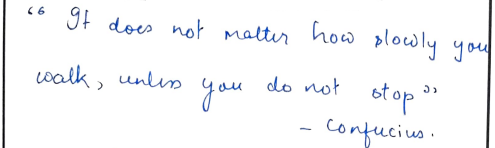 “ It does not matter how slowly you
walk, unless you do not stop ”
- Confucius.